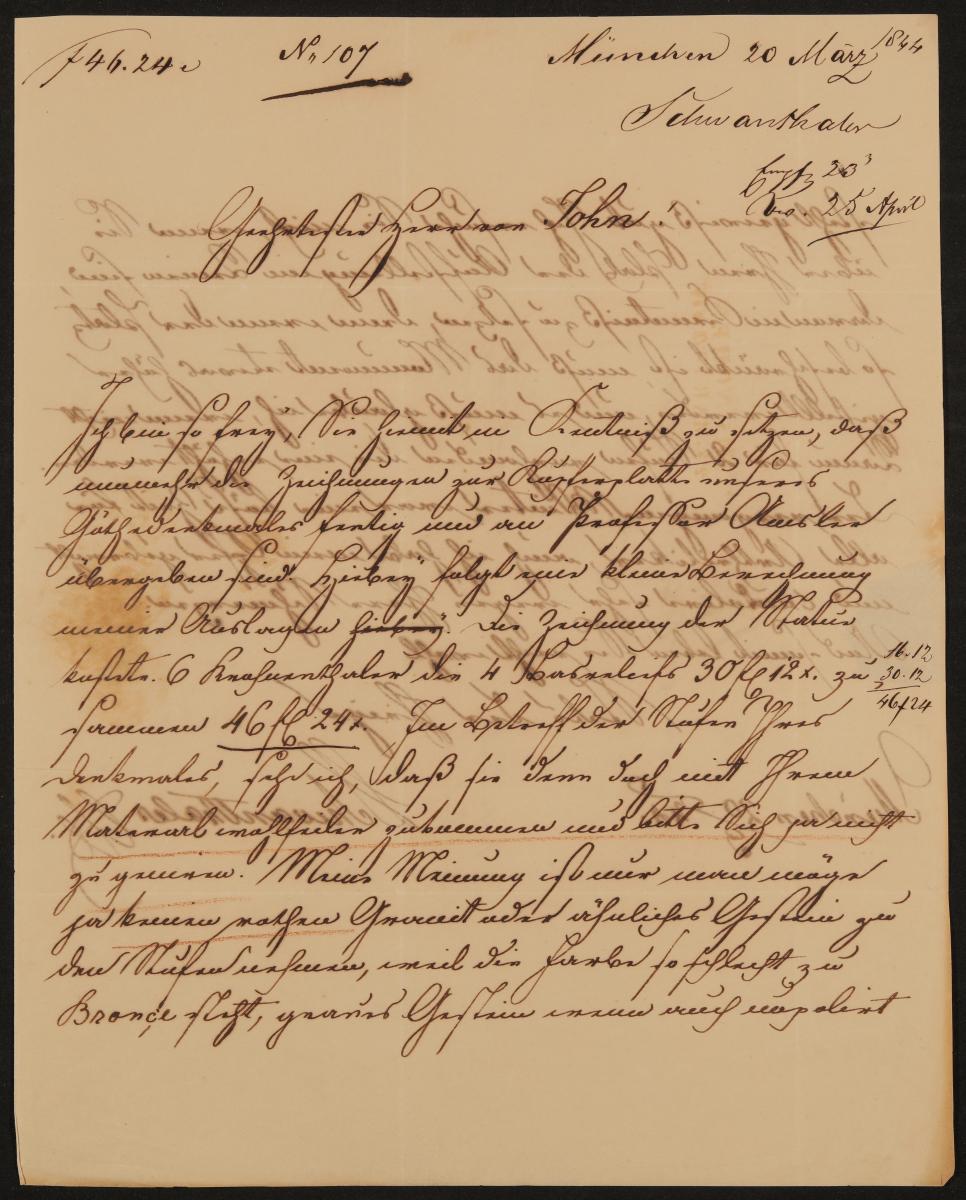 f 46.24
No 107
München 20 März 1844
Schwanthaler
Empf 23
25 April
Geehrtester Herr von John!
Ich bin so frey, Sie hiemit in Kentniß zu setzen, daß
nunmehr die Zeichnungen zur Kupferplatte unseres
Göthedenkmales fertig und an Professor Amsler
übergeben sind. Hiebey folgt eine kleine Berechnung
meiner Auslagen hiebey. Die Zeichnung der Statue
kostete 6 Kronenthaler die 4 Basreliefs 30 fl 12 x. zu
16.12
30.12
46 f 24
sammen 46 fl 24 x. Im Betreff der Stufen Ihres
Denkmales, seh' ich, daß sie denn doch mit Ihrem
Material wohlfeiler zukommen und bitte Sich ja nicht
zu geniren. Meine Meinung ist nur man möge
ja keinen rothen Granit oder ähnliches Gestein zu
den Stufen nehmen, weil die Farbe so schlecht zu
Bronçe steht, graues Gestein wenn auch unpolirt